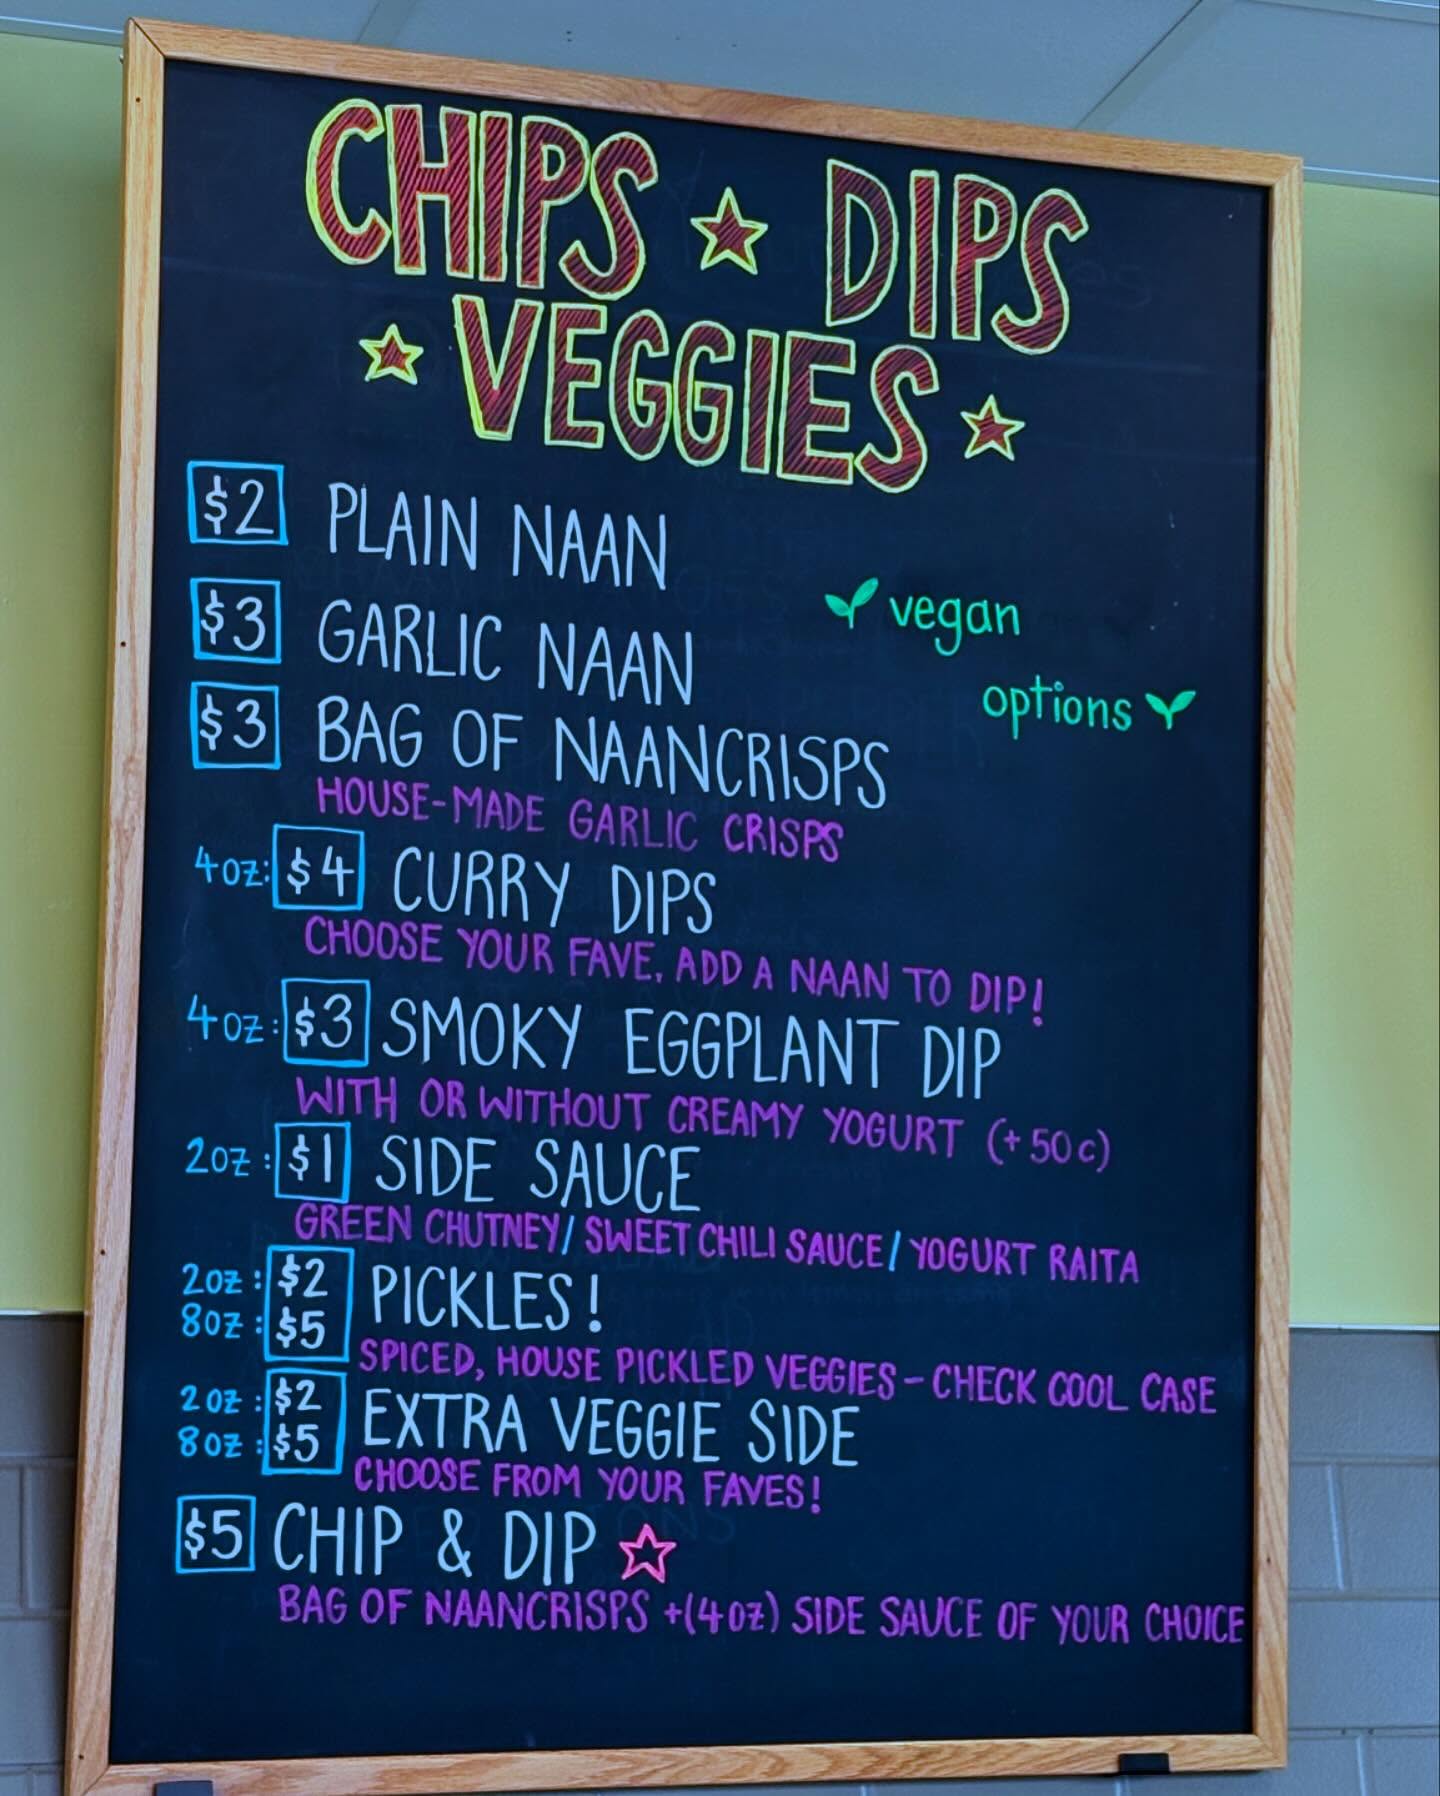 CHIPS ☆ DIPS
☆ VEGGIES ☆
$2 PLAIN NAAN
vegan
$3 GARLIC NAAN
options
$3 BAG OF NAANCRISPS
HOUSE-MADE GARLIC CRISPS
4oz: $4 CURRY DIPS
CHOOSE YOUR FAVE, ADD A NAAN TO DIP!
4oz: $3 SMOKY EGGPLANT DIP
WITH OR WITHOUT CREAMY YOGURT (+50c)
2oz: $1 SIDE SAUCE
GREEN CHUTNEY/SWEET CHILI SAUCE/YOGURT RAITA
2oz: $2 PICKLES!
8oz: $5
SPICED, HOUSE PICKLED VEGGIES - CHECK COOL CASE
2oz: $2 EXTRA VEGGIE SIDE
8oz: $5
CHOOSE FROM YOUR FAVES!
$5 CHIP & DIP ☆
BAG OF NAANCRISPS +(4oz) SIDE SAUCE OF YOUR CHOICE